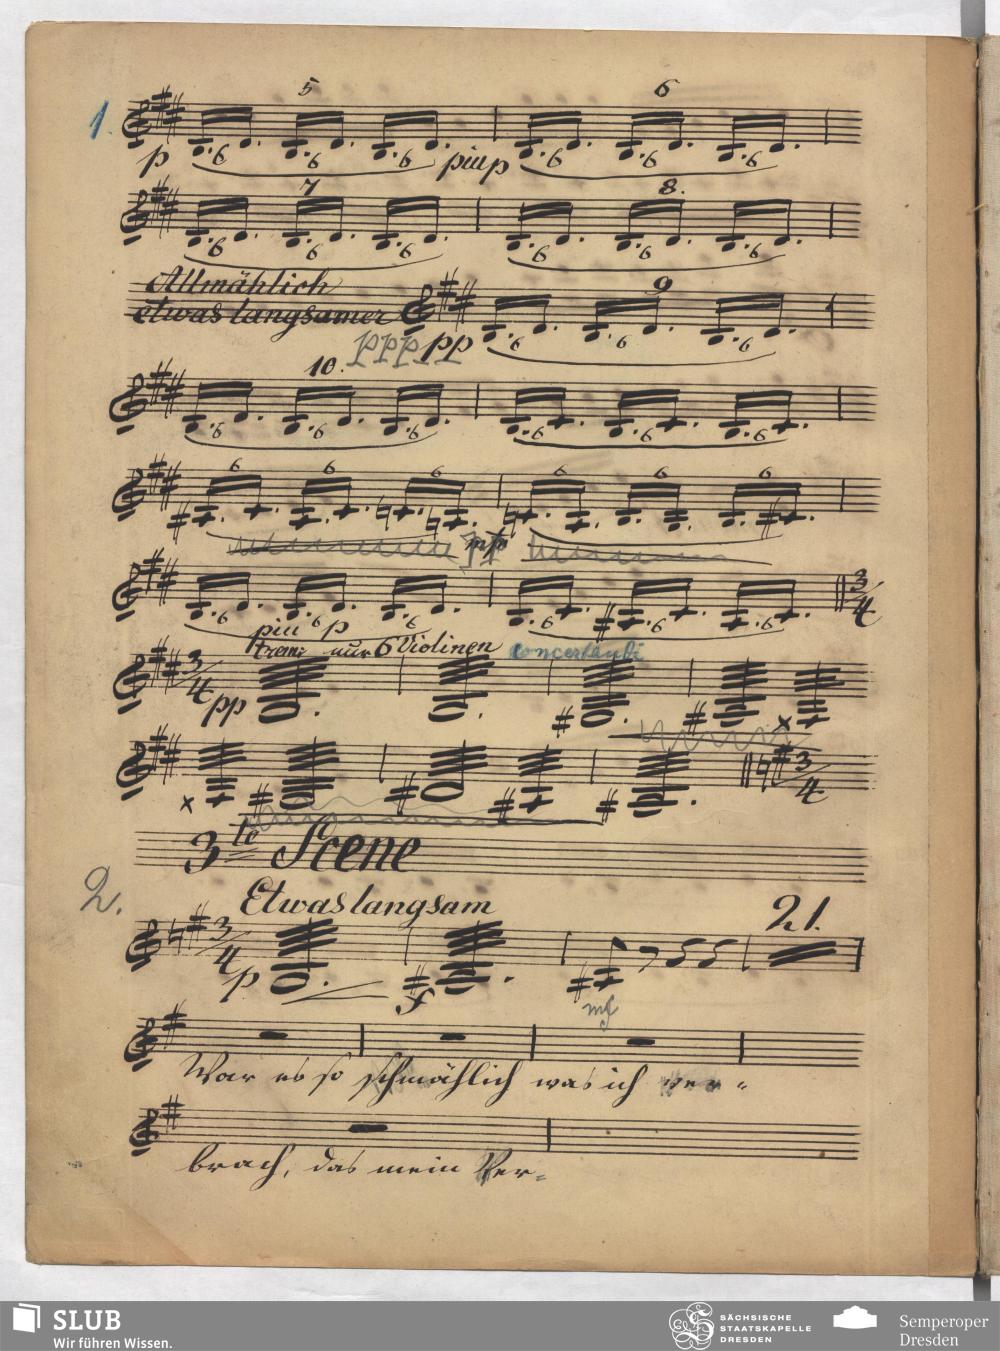 1.
5 6
p 6 6 6 piu p 6 6 6
7 8.
6 6 6 6 6 6
Allmählich
etwas langsamer 9
ppp pp 6 6 6
10.
6 6 6 6 6 6
6 6 6 6 6 6
6 6 6 6 6 6 3/4
piu p
trem: nur 6 Violinen
3/4 pp
3/4
3te Scene
2.
Etwas langsam 21.
3/4 p f mf
War es so schmählich was ich ver-
brach, das mein Ver-
SLUB
Wir führen Wissen.
SÄCHSISCHE
STAATSKAPELLE
DRESDEN
Semperoper
Dresden